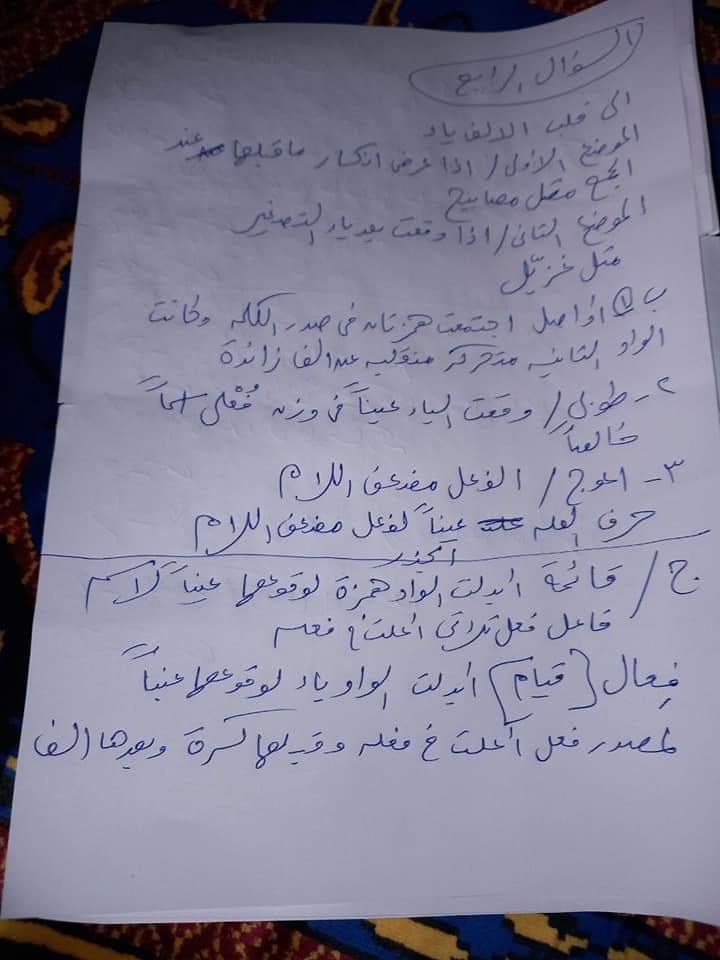 السؤال الرابع
الى قلب الالف ياء
الموضع الاول / اذا عرض انكسار ما قبلها عند
الجمع مثل مصابيح
الموضع الثاني / اذا وقعت بعد ياء التصغير
مثل غزيّل
ب ① أواصل اجتمعت همزتان في صدر الكلمة وكانت
الواو الثانية متحركة منقلبة عن الف زائدة
٢ - طوبى / وقعت الياء عيناً في وزن فُعْلى اسماً
خالصاً
٣ - اعوج / الفعل مضعف اللام
حرف العله عيناً لفعل مضعف اللام
ج / قائمة أبدلت الواو همزة لوقوعها عيناً لاسم
فاعل فعل ثلاثي أعلت في فعله
فِعال (قيام) أبدلت الواو ياء لوقوعها عيناً
لمصدر فعل أعلت في فعله وقبلها كسرة وبعدها الف